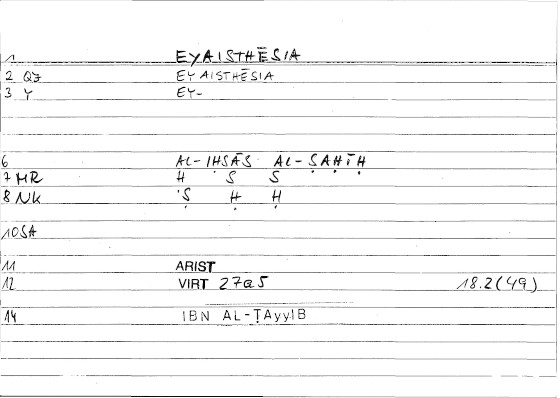 1 EYAISTHĒSIA
2 QZ EYAISTHĒSIA
3 Y EY-
6 AL-IḤSĀS AL-ṢAḤĪḤ
7 MR H S S
8 NK 'Ṣ Ḥ Ḥ
10 SA
11 ARIST
12 VIRT 27a5 18.2(49)
14 IBN AL-ṬAyyIB